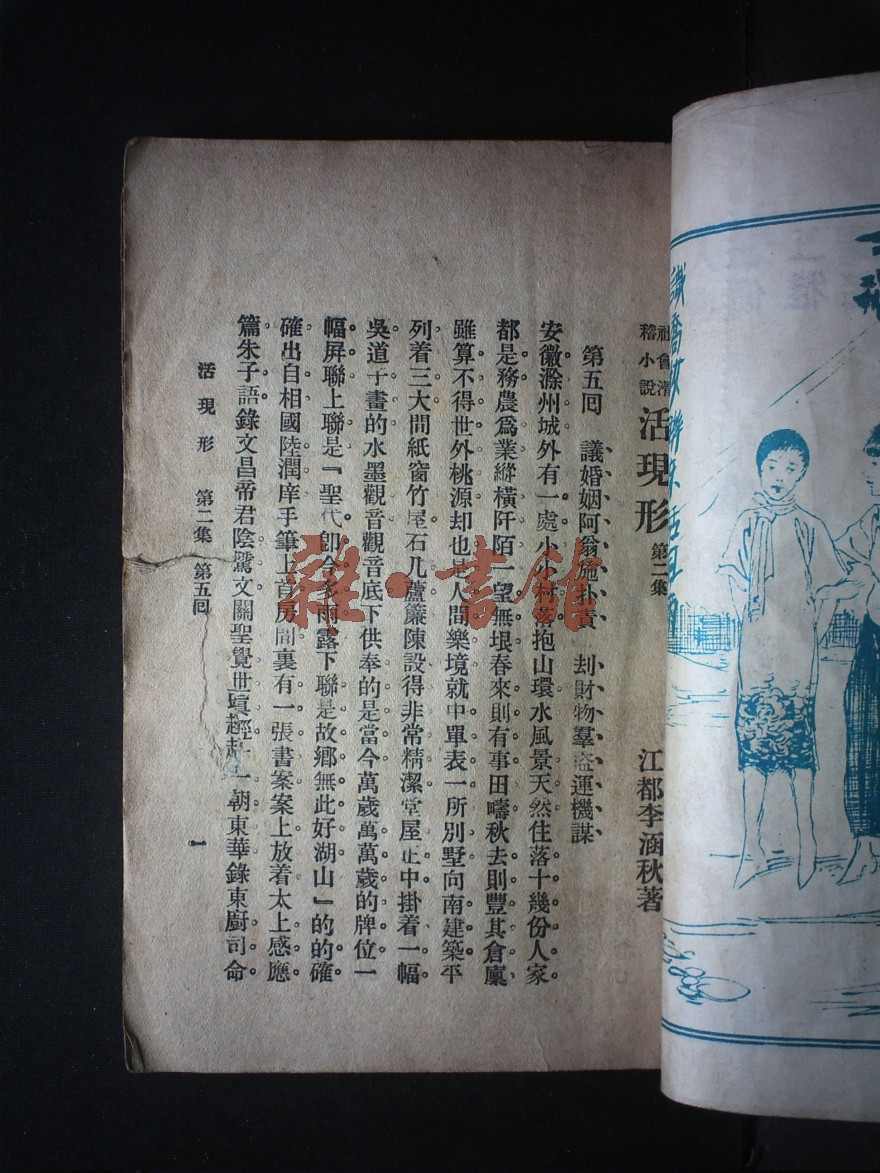 社會滑稽小說 活現形 第二集
江都李涵秋著
第五回 議婚姻阿翁施卦 刦財物羣盜運機謀
安徽滁州城外有一處小小村落抱山環水風景天然住落十幾份人家
都是務農爲業縱橫阡陌一望無垠春來則有事田疇秋去則豐其倉廩
雖算不得世外桃源却也是人間樂境就中單表一所別墅向南建築平
列着三大間紙窗竹屋石几蘆簾陳設得非常精潔堂屋正中掛着一幅
吳道子畫的水墨觀音觀音底下供奉的是當今萬歲萬萬歲的牌位一
幅屏聯上聯是「聖代卽今多雨露下聯是故鄉無此好湖山」的的確
確出自相國陸潤庠手筆上首房間裏有一張書案案上放着太上感應
篇朱子語錄文昌帝君陰騭文關聖覺世眞經 一朝東華錄東廚司命
活現形 第二集 第五回
一
雜·書館